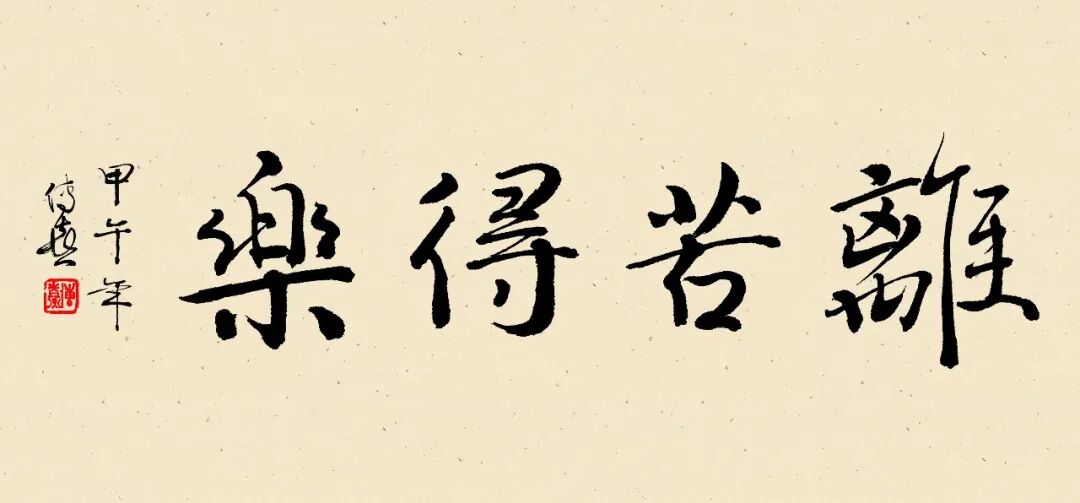 離苦得樂
甲午年
傳真